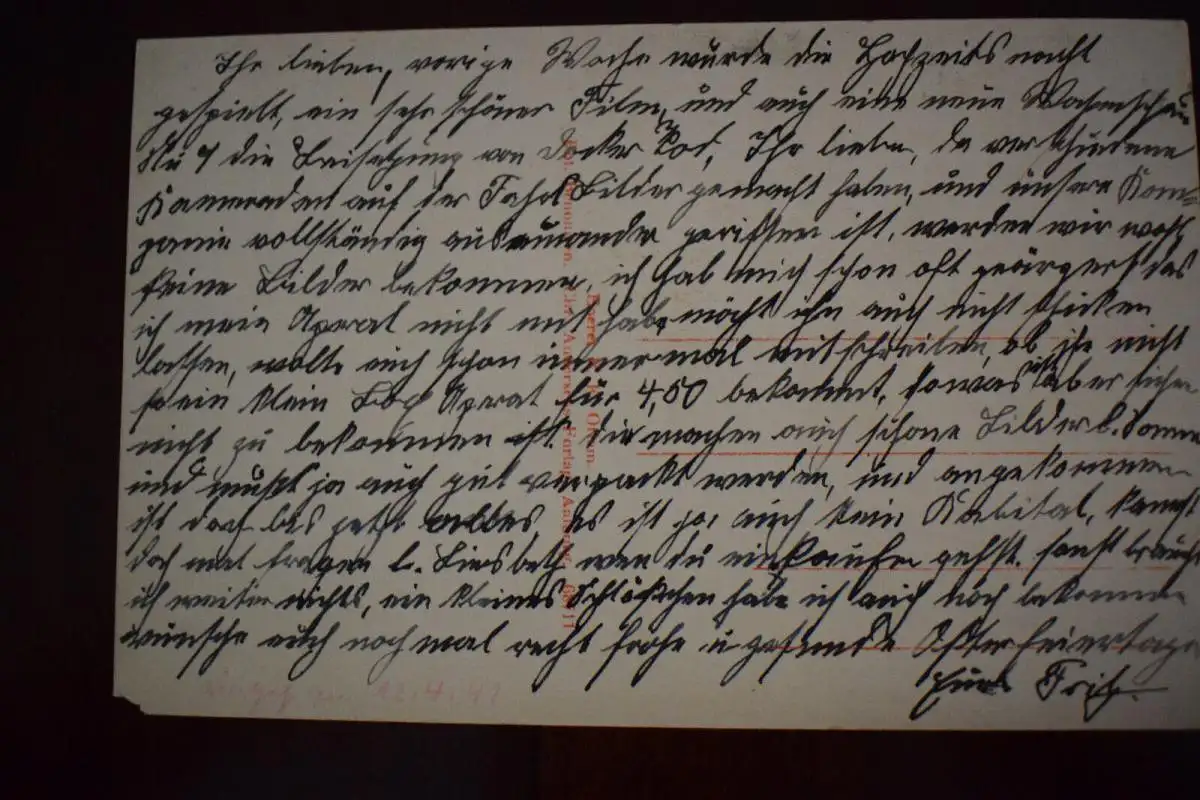 Ihr lieben, vorige Woche wurde die Hochzeitsnacht
gespielt, ein sehr schöner Film, und auch eine neue Wochenschau
die Beisetzung von Ihr lieben, da verschiedene
Kameraden auf der Fahrt Bilder gemacht haben, und unsere Kom=
panie vollständig auseinander gerissen ist, werden wir wohl
keine Bilder bekommen, ich hab mich schon oft geärgert das
ich mein Aparat nicht mit habe, möcht ihn auch nicht schicken
lassen, wollte euch schon immer mal mitschreiben, ob ihr nicht
so ein klein Box Aparat für 4,50 bekommt, sowas ist aber sicher
nicht zu bekommen ist. die machen auch schöne Bilder b. Sonne
und muß ja auch gut verpackt werden, und angekommen
ist doch bis jetzt alles, es ist ja auch kein Kabital, kannst
doch mal fragen l. Liesbeth wen du einkaufen gehst. sonst brauch
ich weiter nichts, ein kleines Schlößchen habe ich auch noch bekommen
wünsche euch noch mal recht frohe u. gesunde Osterfeiertage
Euer Fritz.
12.4.41